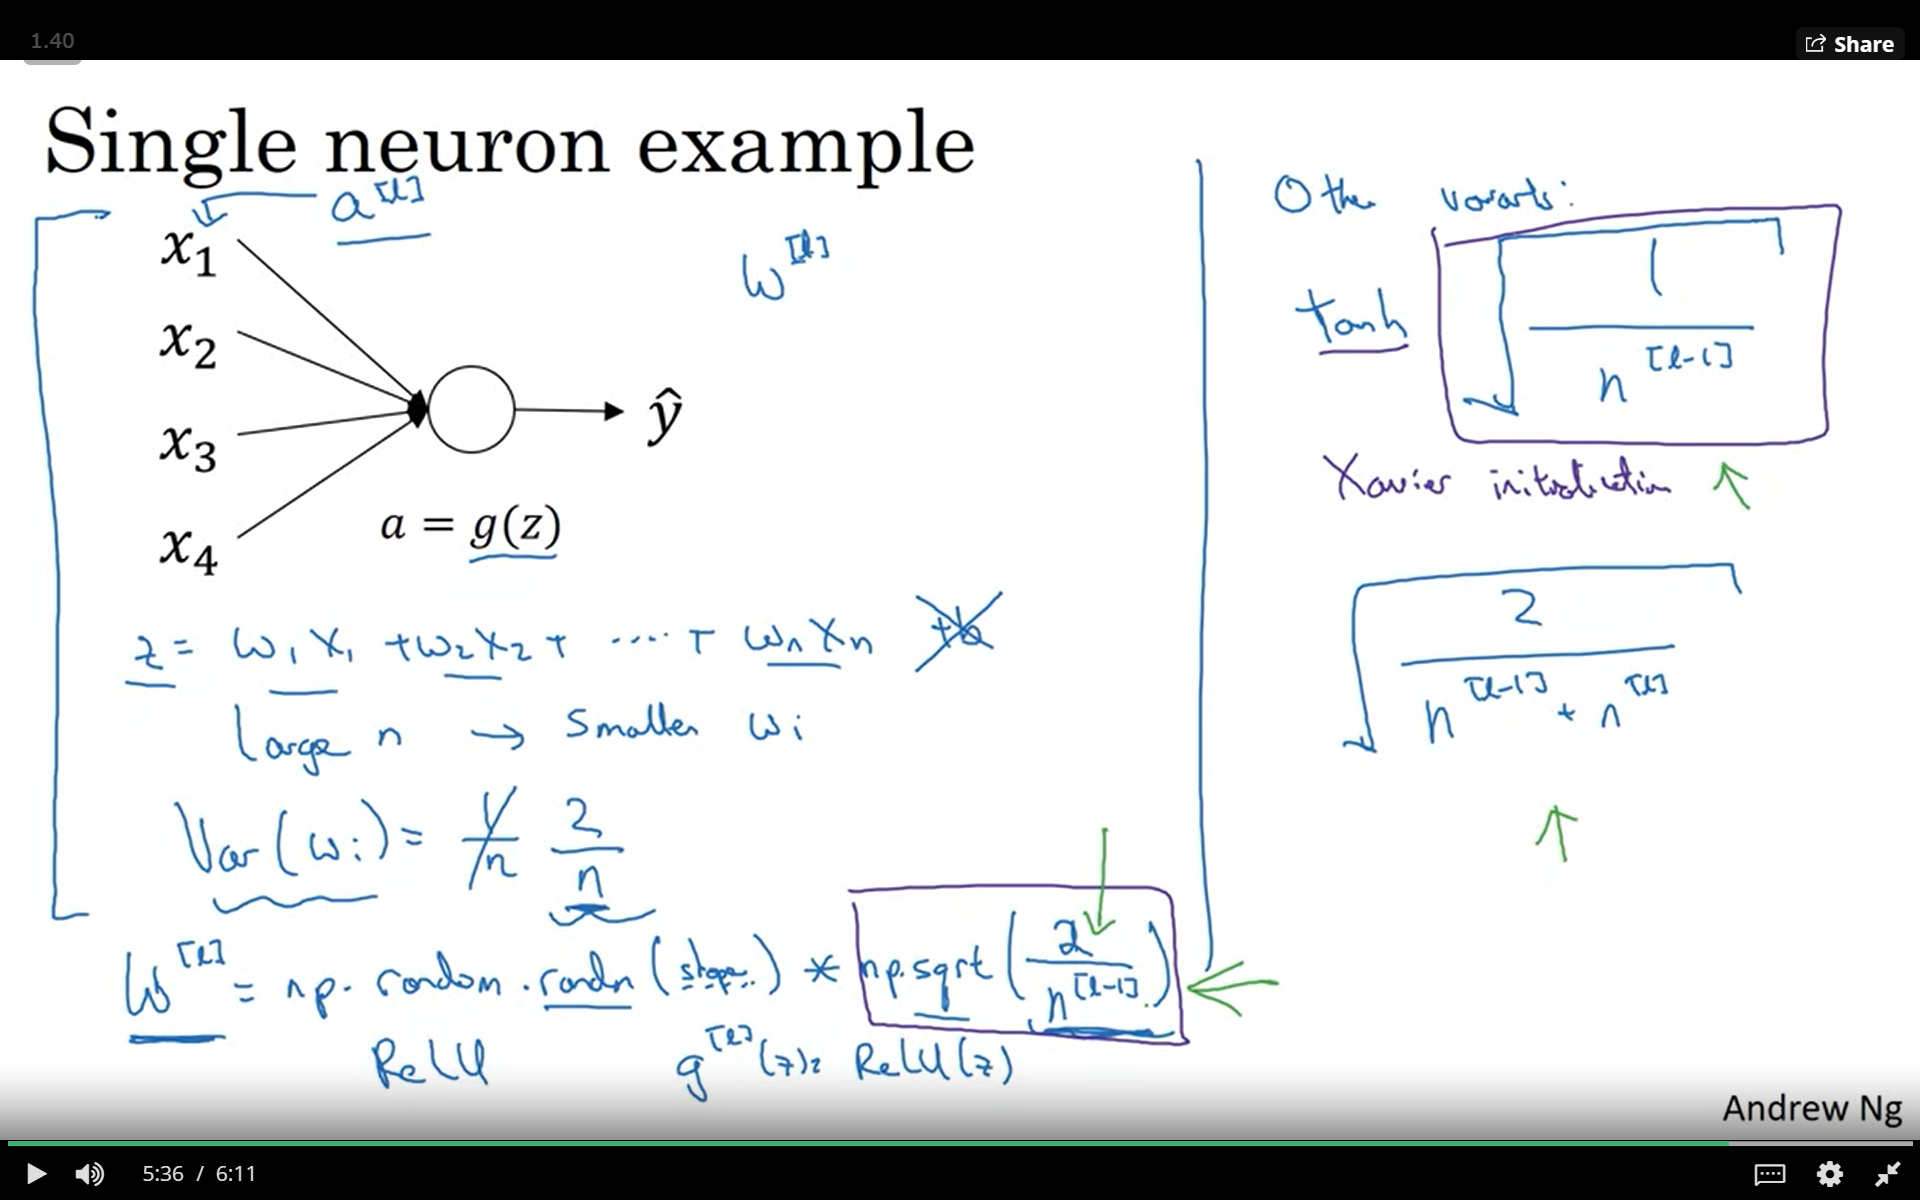 1.40
Share
Single neuron example
a^[l]
x₁
x₂
x₃
x₄
w^[l]
ŷ
a = g(z)
z = w₁x₁ + w₂x₂ + ..... + wₙxₙ +b
Large n → Smaller wᵢ
Var(wᵢ) = 1/n 2/n
W^[l] = np.random.randn(shape) * np.sqrt(2/n^[l-1])
ReLU g^[l](z) = ReLU(z)
Other variants:
tanh √(1/n^[l-1])
Xavier initialization
√(2/(n^[l-1] + n^[l]))
Andrew Ng
5:36 / 6:11